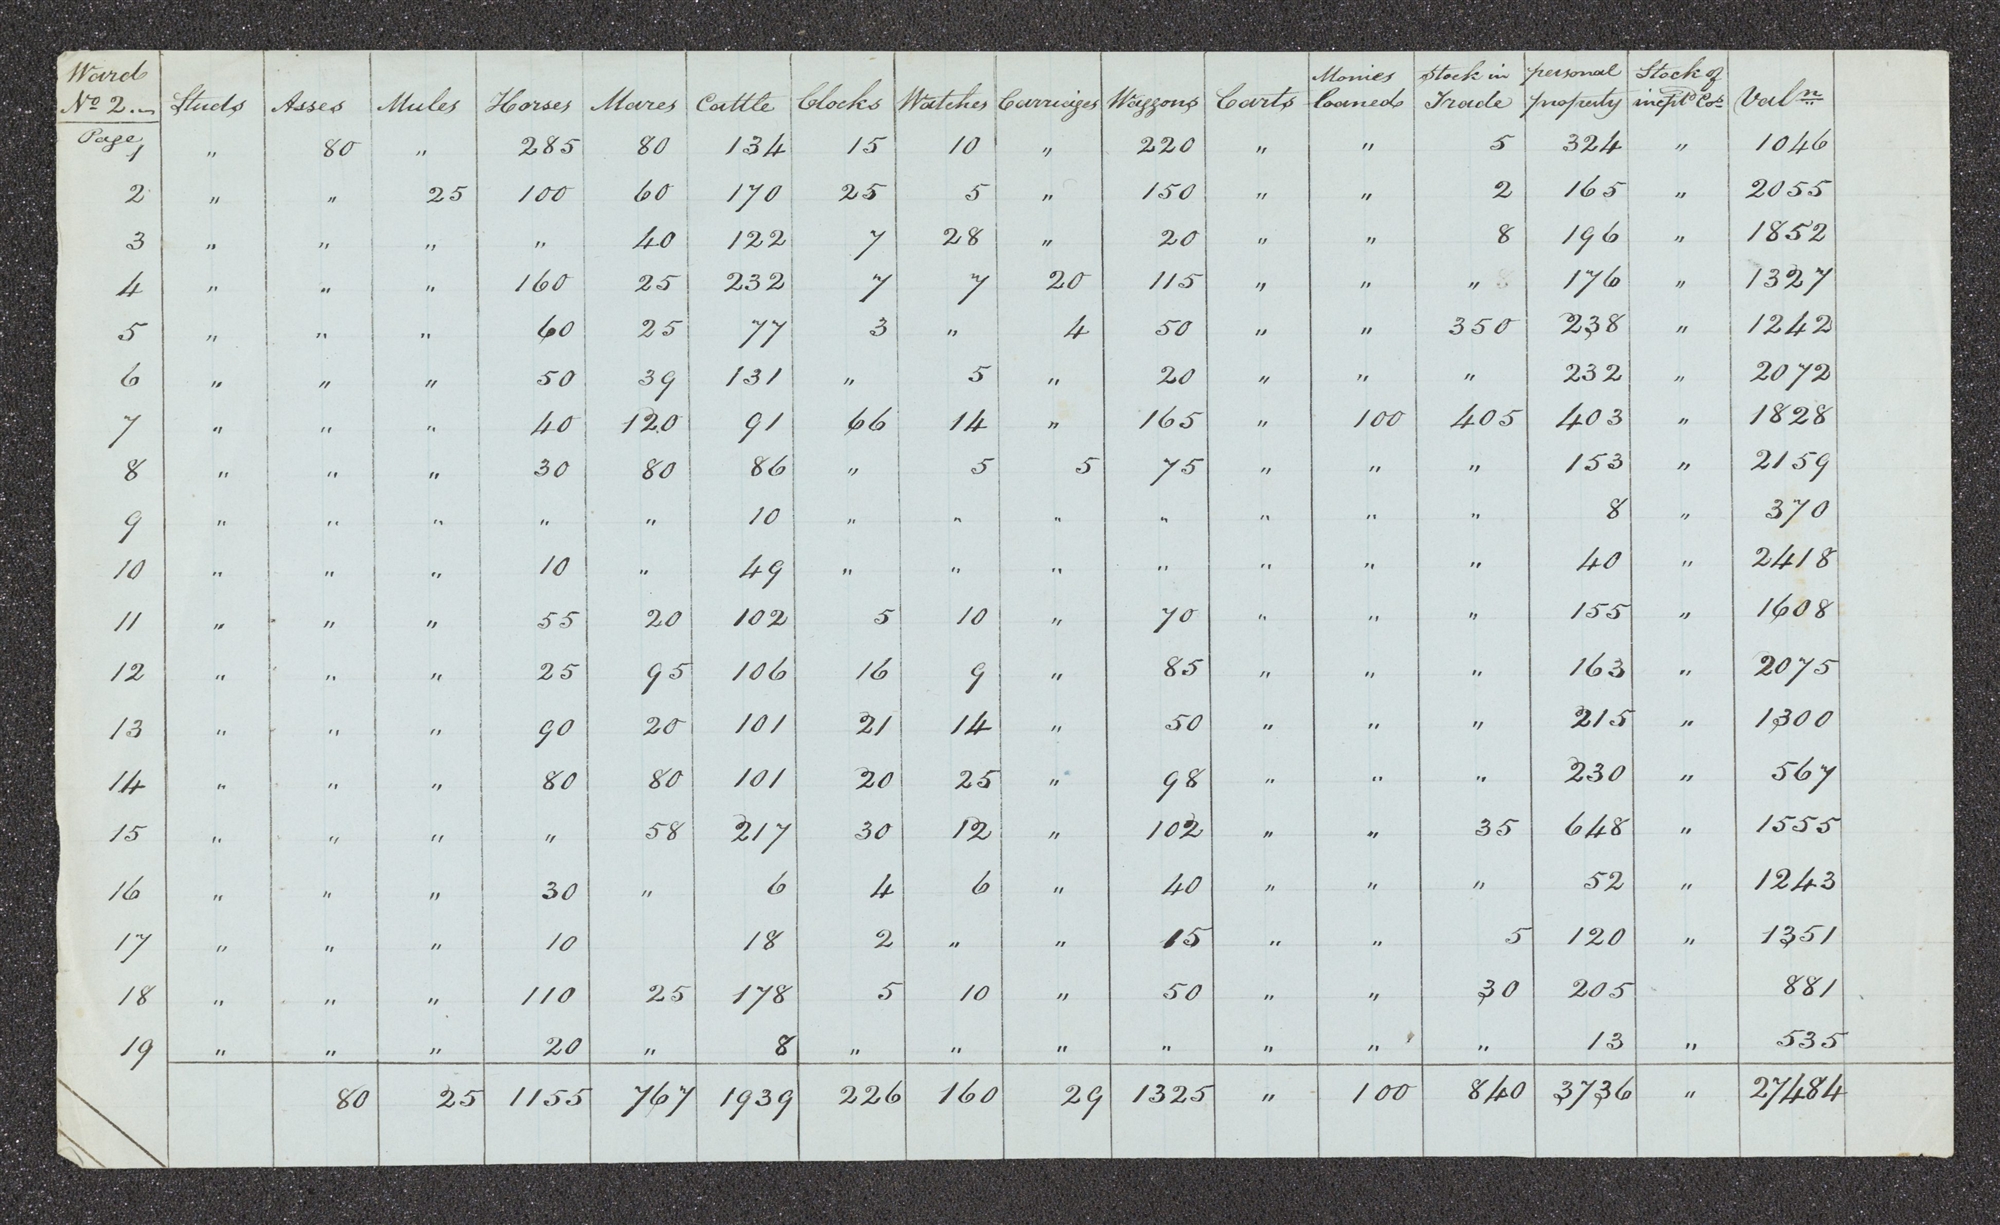 Ward No 2. Studs Asses Mules Horses Mares Cattle Clocks Watches Carriages Waggons Carts Monies loaned Stock in Trade personal property Stock of Cos. Valn
Page 1 " 80 " 285 80 134 15 10 " 220 " " 5 324 " 1046
2 " " 25 100 60 170 25 5 " 150 " " 2 165 " 2055
3 " " " " 40 122 7 28 " 20 " " 8 196 " 1852
4 " " " 160 25 232 7 7 20 115 " " " 176 " 1327
5 " " " 60 25 77 3 " 4 50 " " 350 238 " 1242
6 " " " 50 39 131 " 5 " 20 " " " 232 " 2072
7 " " " 40 120 91 66 14 " 165 " 100 405 403 " 1828
8 " " " 30 80 86 " 5 5 75 " " " 153 " 2159
9 " " " " " 10 " " " " " " " 8 " 370
10 " " " 10 " 49 " " " " " " " 40 " 2418
11 " " " 55 20 102 5 10 " 70 " " " 155 " 1608
12 " " " 25 95 106 16 9 " 85 " " " 163 " 2075
13 " " " 90 20 101 21 14 " 50 " " " 215 " 1300
14 " " " 80 80 101 20 25 " 98 " " " 230 " 567
15 " " " " 58 217 30 12 " 102 " " 35 648 " 1555
16 " " " 30 " 6 4 6 " 40 " " " 52 " 1243
17 " " " 10 18 2 " " 15 " " 5 120 " 1351
18 " " " 110 25 178 5 10 " 50 " " 30 205 881
19 " " " 20 " 8 " " " " " " " 13 " 535
80 25 1155 767 1939 226 160 29 1325 " 100 840 3736 " 27484